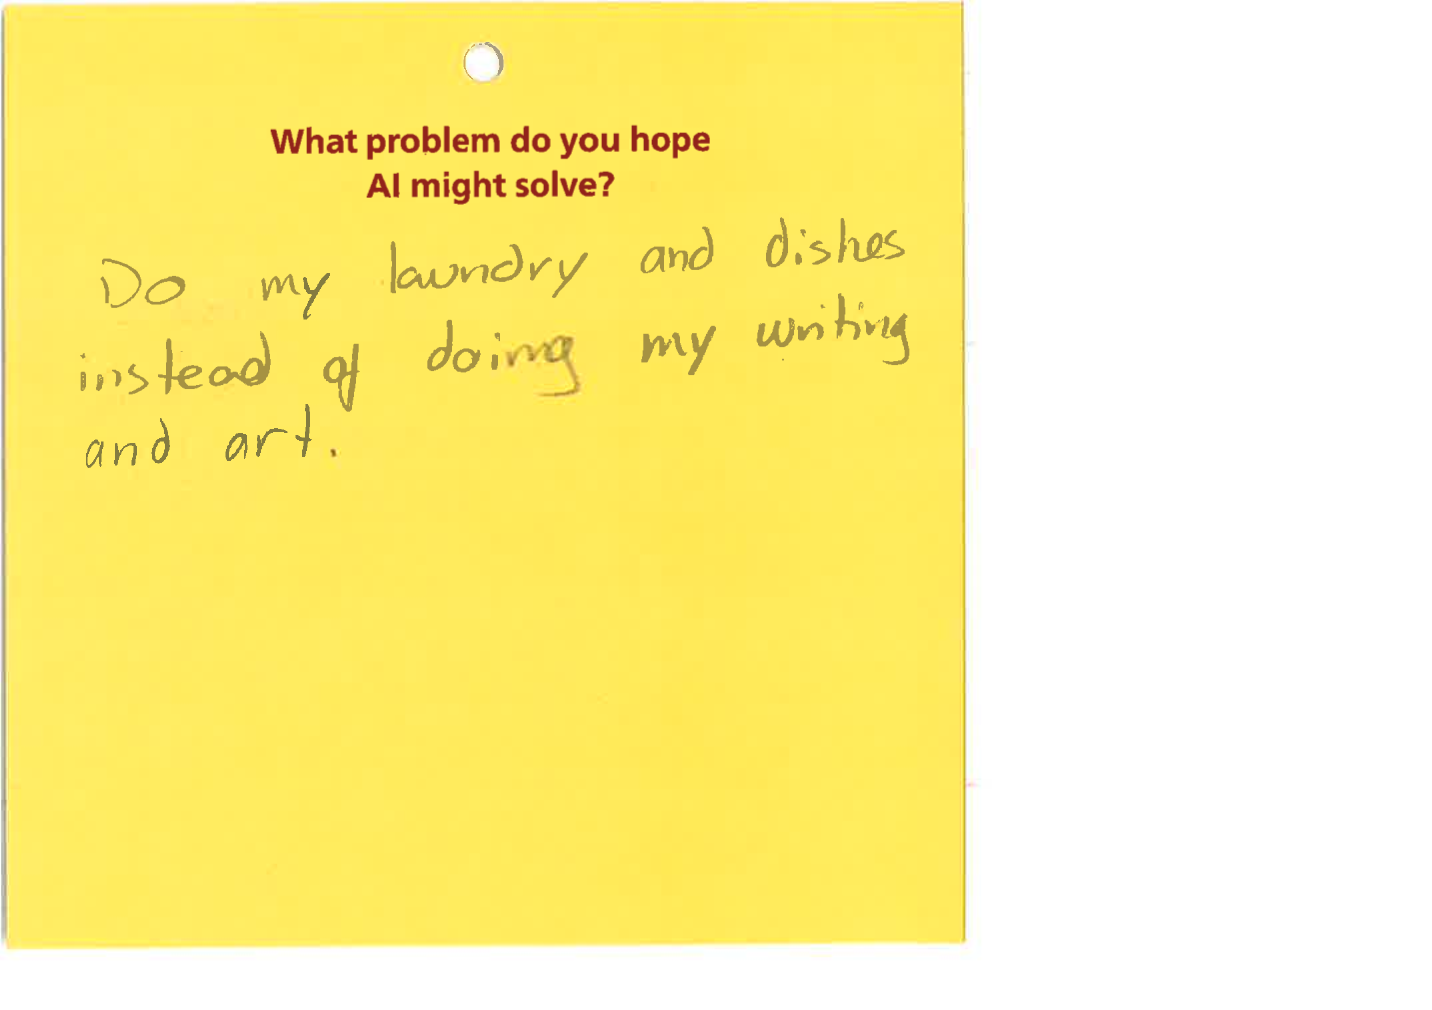 What problem do you hope
AI might solve?
Do my laundry and dishes
instead of doing my writing
and art.